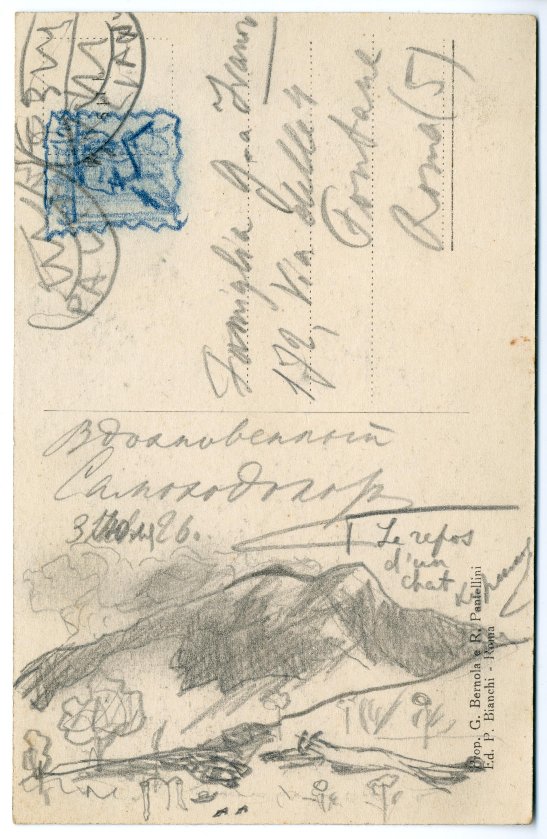 Famiglia
172, Via delle 4
Fontane
Roma (5)
Вдохновенный
26.
Le repos
d'un
chat
Prop. G. Bernola e R. Pantellini
Ed. P. Bianchi - Roma